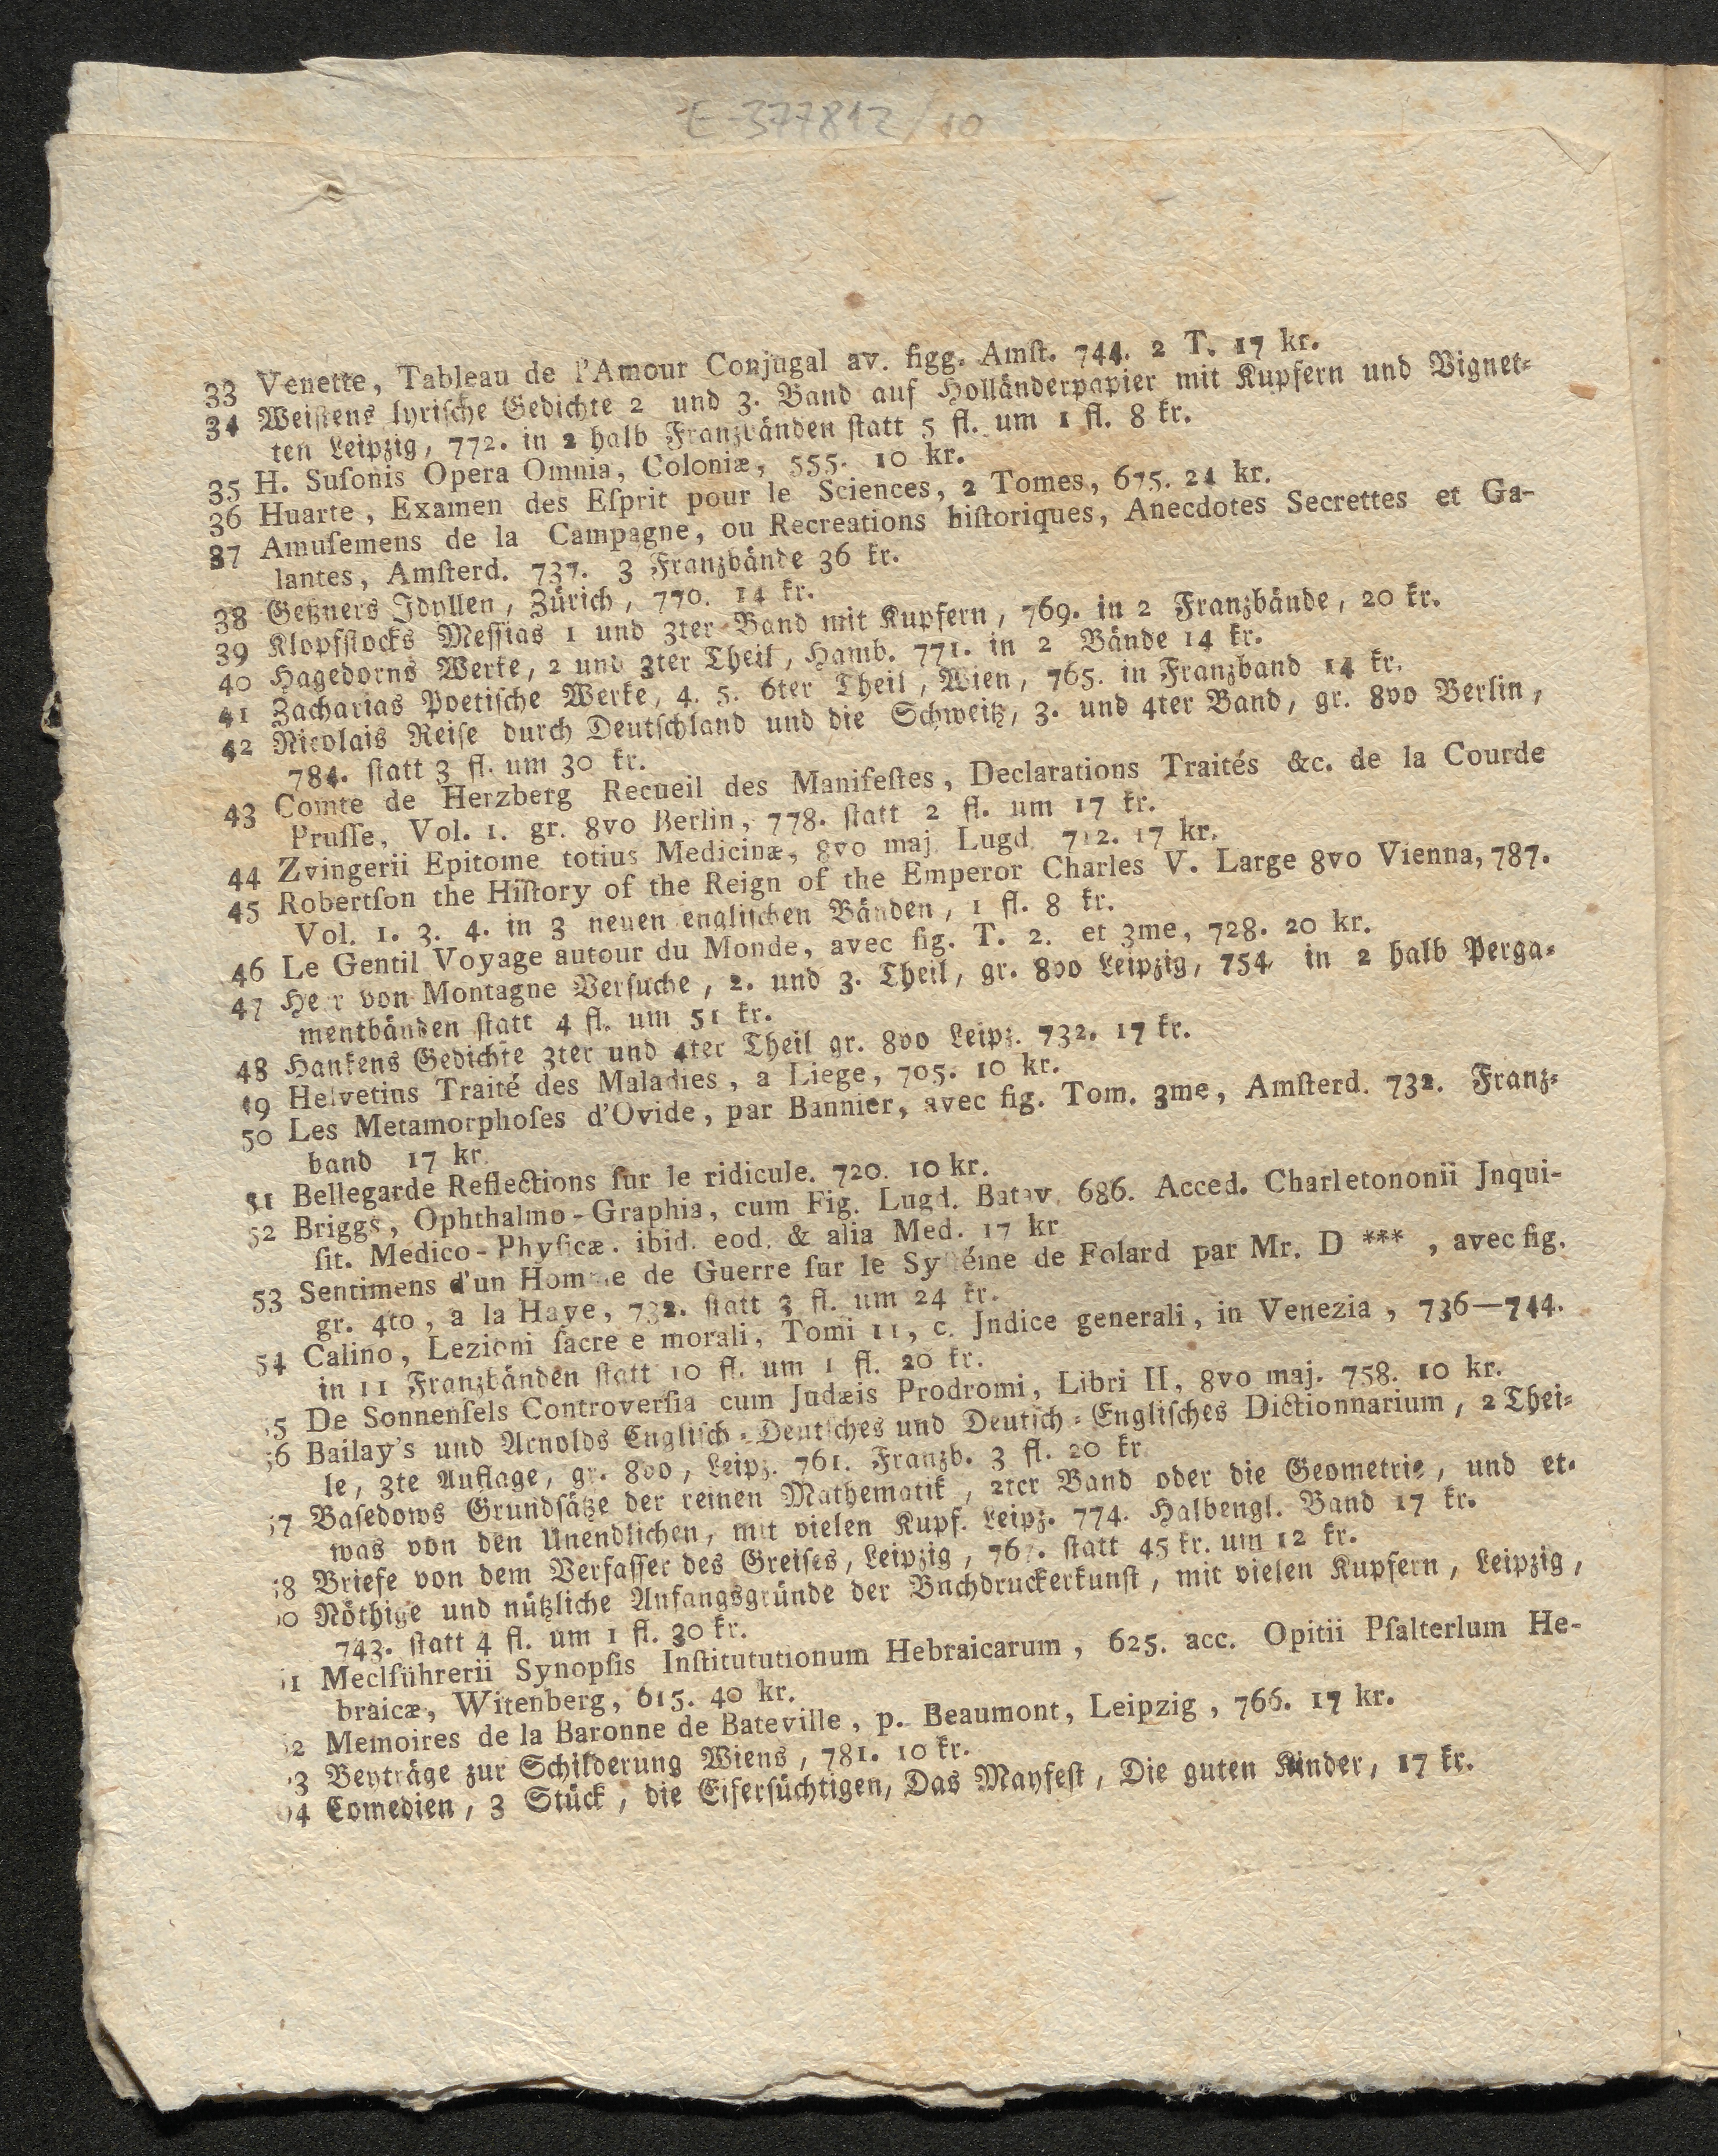 E-377812/10
33 Venette, Tableau de l'Amour Conjugal av. figg. Amſt. 744. 2 T. 17 kr.
34 Weißens lyriſche Gedichte 2 und 3. Band auf Holländerpapier mit Kupfern und Vignet-
ten Leipzig, 772. in 2 halb Franzbänden ſtatt 5 fl. um 1 fl. 8 kr.
35 H. Suſonis Opera Omnia, Coloniæ, 555. 10 kr.
36 Huarte, Examen des Eſprit pour le Sciences, 2 Tomes, 675. 24 kr.
37 Amuſemens de la Campagne, ou Recreations hiſtoriques, Anecdotes Secrettes et Ga-
lantes, Amſterd. 737. 3 Franzbände 36 kr.
38 Geßners Idyllen, Zürich, 770. 14 kr.
39 Klopfſtocks Meſſias 1 und 3ter Band mit Kupfern, 769. in 2 Franzbände, 20 kr.
40 Hagedorns Werke, 2 und 3ter Theil, Hamb. 771. in 2 Bände 14 kr.
41 Zacharias Poetiſche Werke, 4. 5. 6ter Theil, Wien, 765. in Franzband 14 kr.
42 Nicolais Reiſe durch Deutſchland und die Schweitz, 3. und 4ter Band, gr. 8vo Berlin,
784. ſtatt 3 fl. um 30 kr.
43 Comte de Herzberg Recueil des Manifeſtes, Declarations Traités &c. de la Courde
Pruſſe, Vol. 1. gr. 8vo Berlin, 778. ſtatt 2 fl. um 17 kr.
44 Zvingerii Epitome totius Medicinæ, 8vo maj. Lugd. 712. 17 kr.
45 Robertſon the Hiſtory of the Reign of the Emperor Charles V. Large 8vo Vienna, 787.
Vol. 1. 3. 4. in 3 neuen engliſchen Bänden, 1 fl. 8 kr.
46 Le Gentil Voyage autour du Monde, avec fig. T. 2. et 3me, 728. 20 kr.
47 Herr von Montagne Verſuche, 2. und 3. Theil, gr. 8vo Leipzig, 754. in 2 halb Perga-
mentbänden ſtatt 4 fl. um 51 kr.
48 Hankens Gedichte 3ter und 4ter Theil gr. 8vo Leipz. 732. 17 kr.
49 Helvetius Traité des Maladies, a Liege, 705. 10 kr.
50 Les Metamorphoſes d'Ovide, par Bannier, avec fig. Tom. 3me, Amſterd. 732. Franz-
band 17 kr.
51 Bellegarde Reflections ſur le ridicule. 720. 10 kr.
52 Briggs, Ophthalmo-Graphia, cum Fig. Lugd. Batav. 686. Acced. Charletononii Jnqui-
ſit. Medico-Phyſicæ. ibid. eod. & alia Med. 17 kr
53 Sentimens d'un Homme de Guerre ſur le Syſtéme de Folard par Mr. D ***, avec fig.
gr. 4to, a la Haye, 732. ſtatt 3 fl. um 24 kr.
54 Calino, Lezioni ſacre e morali, Tomi 11, c. Jndice generali, in Venezia, 736—744.
in 11 Franzbänden ſtatt 10 fl. um 1 fl. 20 kr.
5 De Sonnenfels Controverſia cum Judæis Prodromi, Libri II, 8vo maj. 758. 10 kr.
56 Bailay's und Arnolds Engliſch-Deutſches und Deutſch-Engliſches Dictionnarium, 2 Thei-
le, 3te Auflage, gr. 8vo, Leipz. 761. Franzb. 3 fl. 20 kr
57 Baſedows Grundſätze der reinen Mathematik, 2ter Band oder die Geometrie, und et-
was von den Unendlichen, mit vielen Kupf. Leipz. 774. Halbengl. Band 17 kr.
58 Briefe von dem Verfaſſer des Greiſes, Leipzig, 767. ſtatt 45 kr. um 12 kr.
0 Nöthige und nützliche Anfangsgründe der Buchdruckerkunſt, mit vielen Kupfern, Leipzig,
743. ſtatt 4 fl. um 1 fl. 30 kr.
1 Meclführerii Synopſis Inſtitututionum Hebraicarum, 625. acc. Opitii Pſalterlum He-
braicæ, Witenberg, 615. 40 kr.
2 Memoires de la Baronne de Bateville, p. Beaumont, Leipzig, 766. 17 kr.
3 Beyträge zur Schilderung Wiens, 781. 10 kr.
4 Comedien, 3 Stück, die Eiferſüchtigen, Das Mayfeſt, Die guten Kinder, 17 kr.